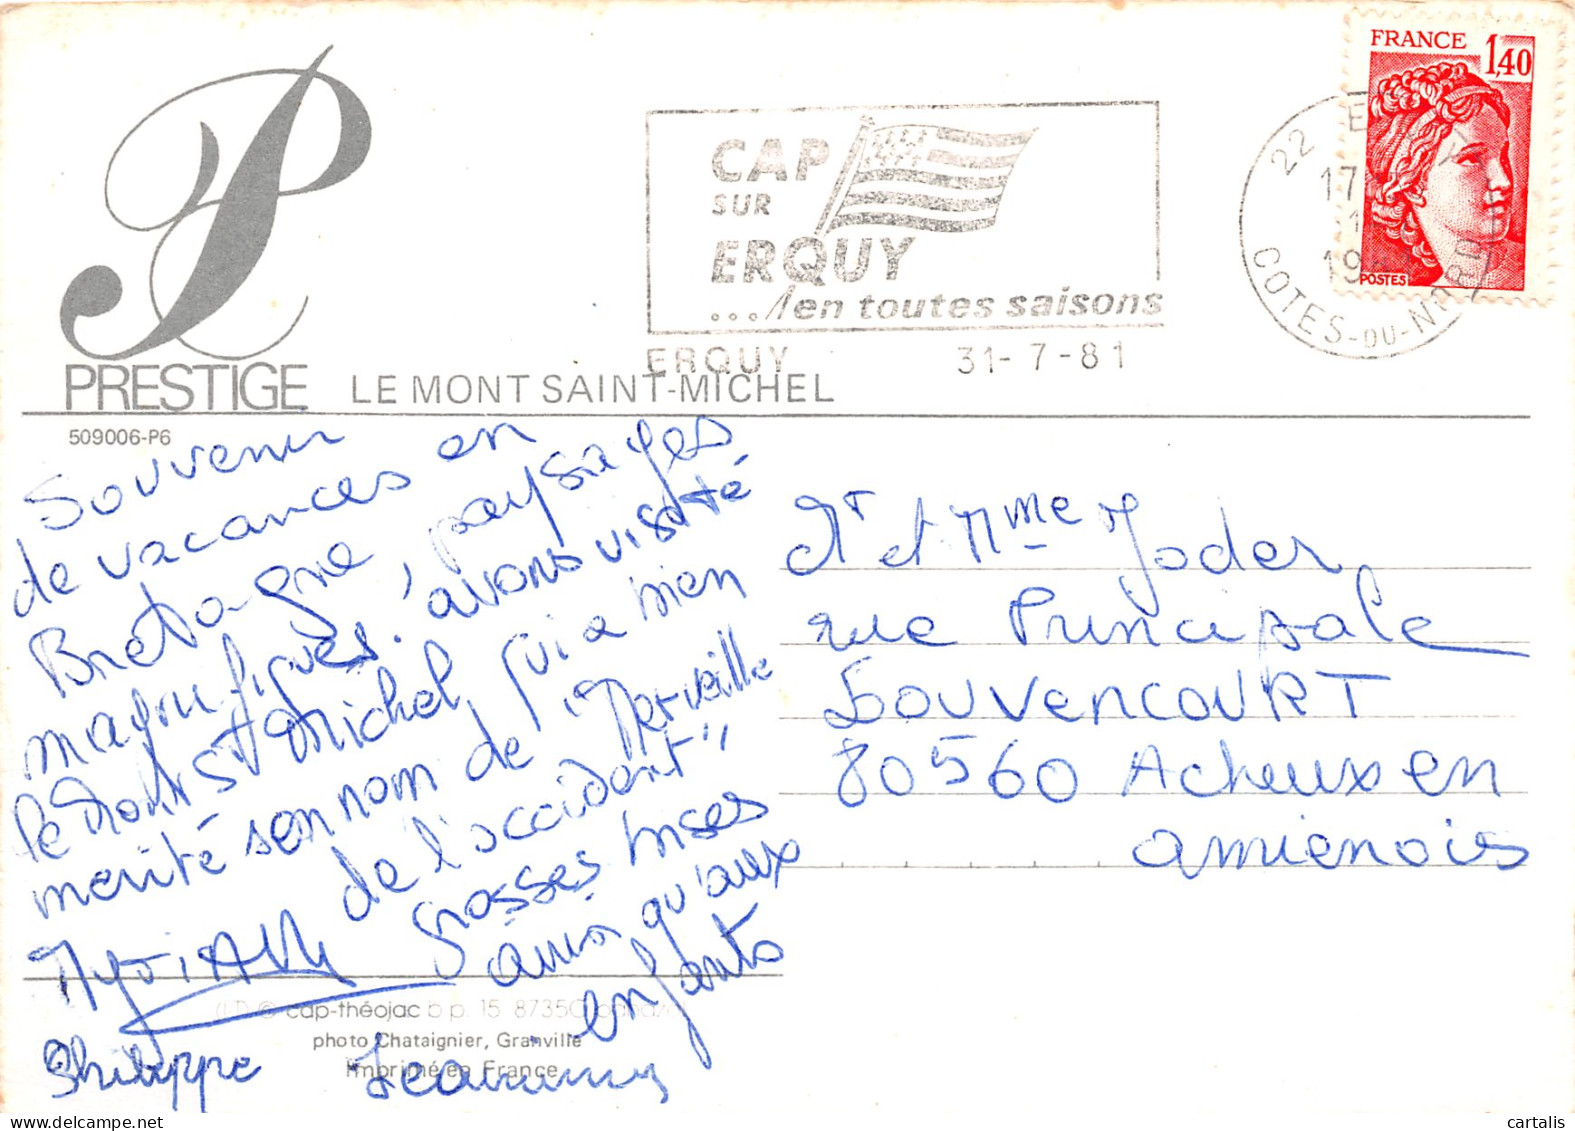 FRANCE 1,40
POSTES
22 E Y
17
1
19
COTES-DU-NORD
CAP
SUR
ERQUY
.../en toutes saisons
ERQUY 31-7-81
PRESTIGE LE MONT SAINT-MICHEL
509006-P6
Souvenir
de vacances en
Bretagne, paysages
magnifiques. avons visité
le Mont St Michel, qui a bien
mérité son nom de "Merveille
de l'occident"
Grosses bises
ainsi qu'aux
enfants
Myriam
Philippe
Mr et Mme Yoder
rue Principale
Louvencourt
80560 Acheux en
amienois
cap-théojac b.p. 15 87350
photo Chataignier, Granville
Imprimé en France
cartalis
www.delcampe.net